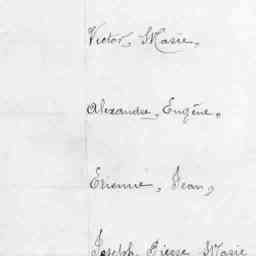 Victor, Marie,
Alexandre, Eugène,
Etienne, Jean,
Joseph, Pierre Marie